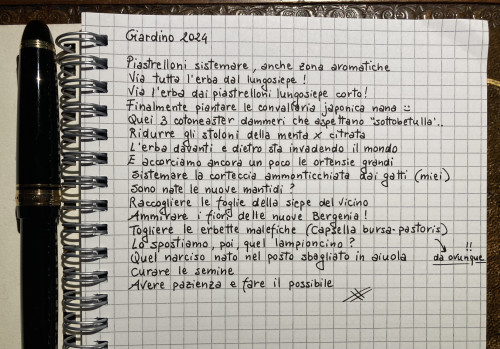 Giardino 2024
Piastrelloni sistemare, anche zona aromatiche
Via tutta l'erba dal lungosiepe!
Via l'erba dai piastrelloni lungosiepe corto!
Finalmente piantare le convallaria japonica nana :=
Quei 3 cotoneaster dammeri che aspettano "sottobetulla"..
Ridurre gli stoloni della menta x citrata
L'erba davanti e dietro sta invadendo il mondo
E accorciamo ancora un poco le ortensie grandi
Sistemare la corteccia ammonticchiata dai gatti (miei)
Sono nate le nuove mantidi?
Raccogliere le foglie della siepe del vicino
Ammirare i fiori delle nuove Bergenia!
Togliere le erbette malefiche (Capsella bursa-pastoris)
Lo spostiamo, poi, quel lampioncino?
!!
Quel narciso nato nel posto sbagliato in aiuola
da ovunque
Curare le semine
Avere pazienza e fare il possibile